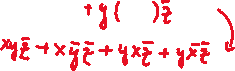 + y (    ) z̄
xyz̄ + xȳz̄ + yxz̄ + yx̄z̄